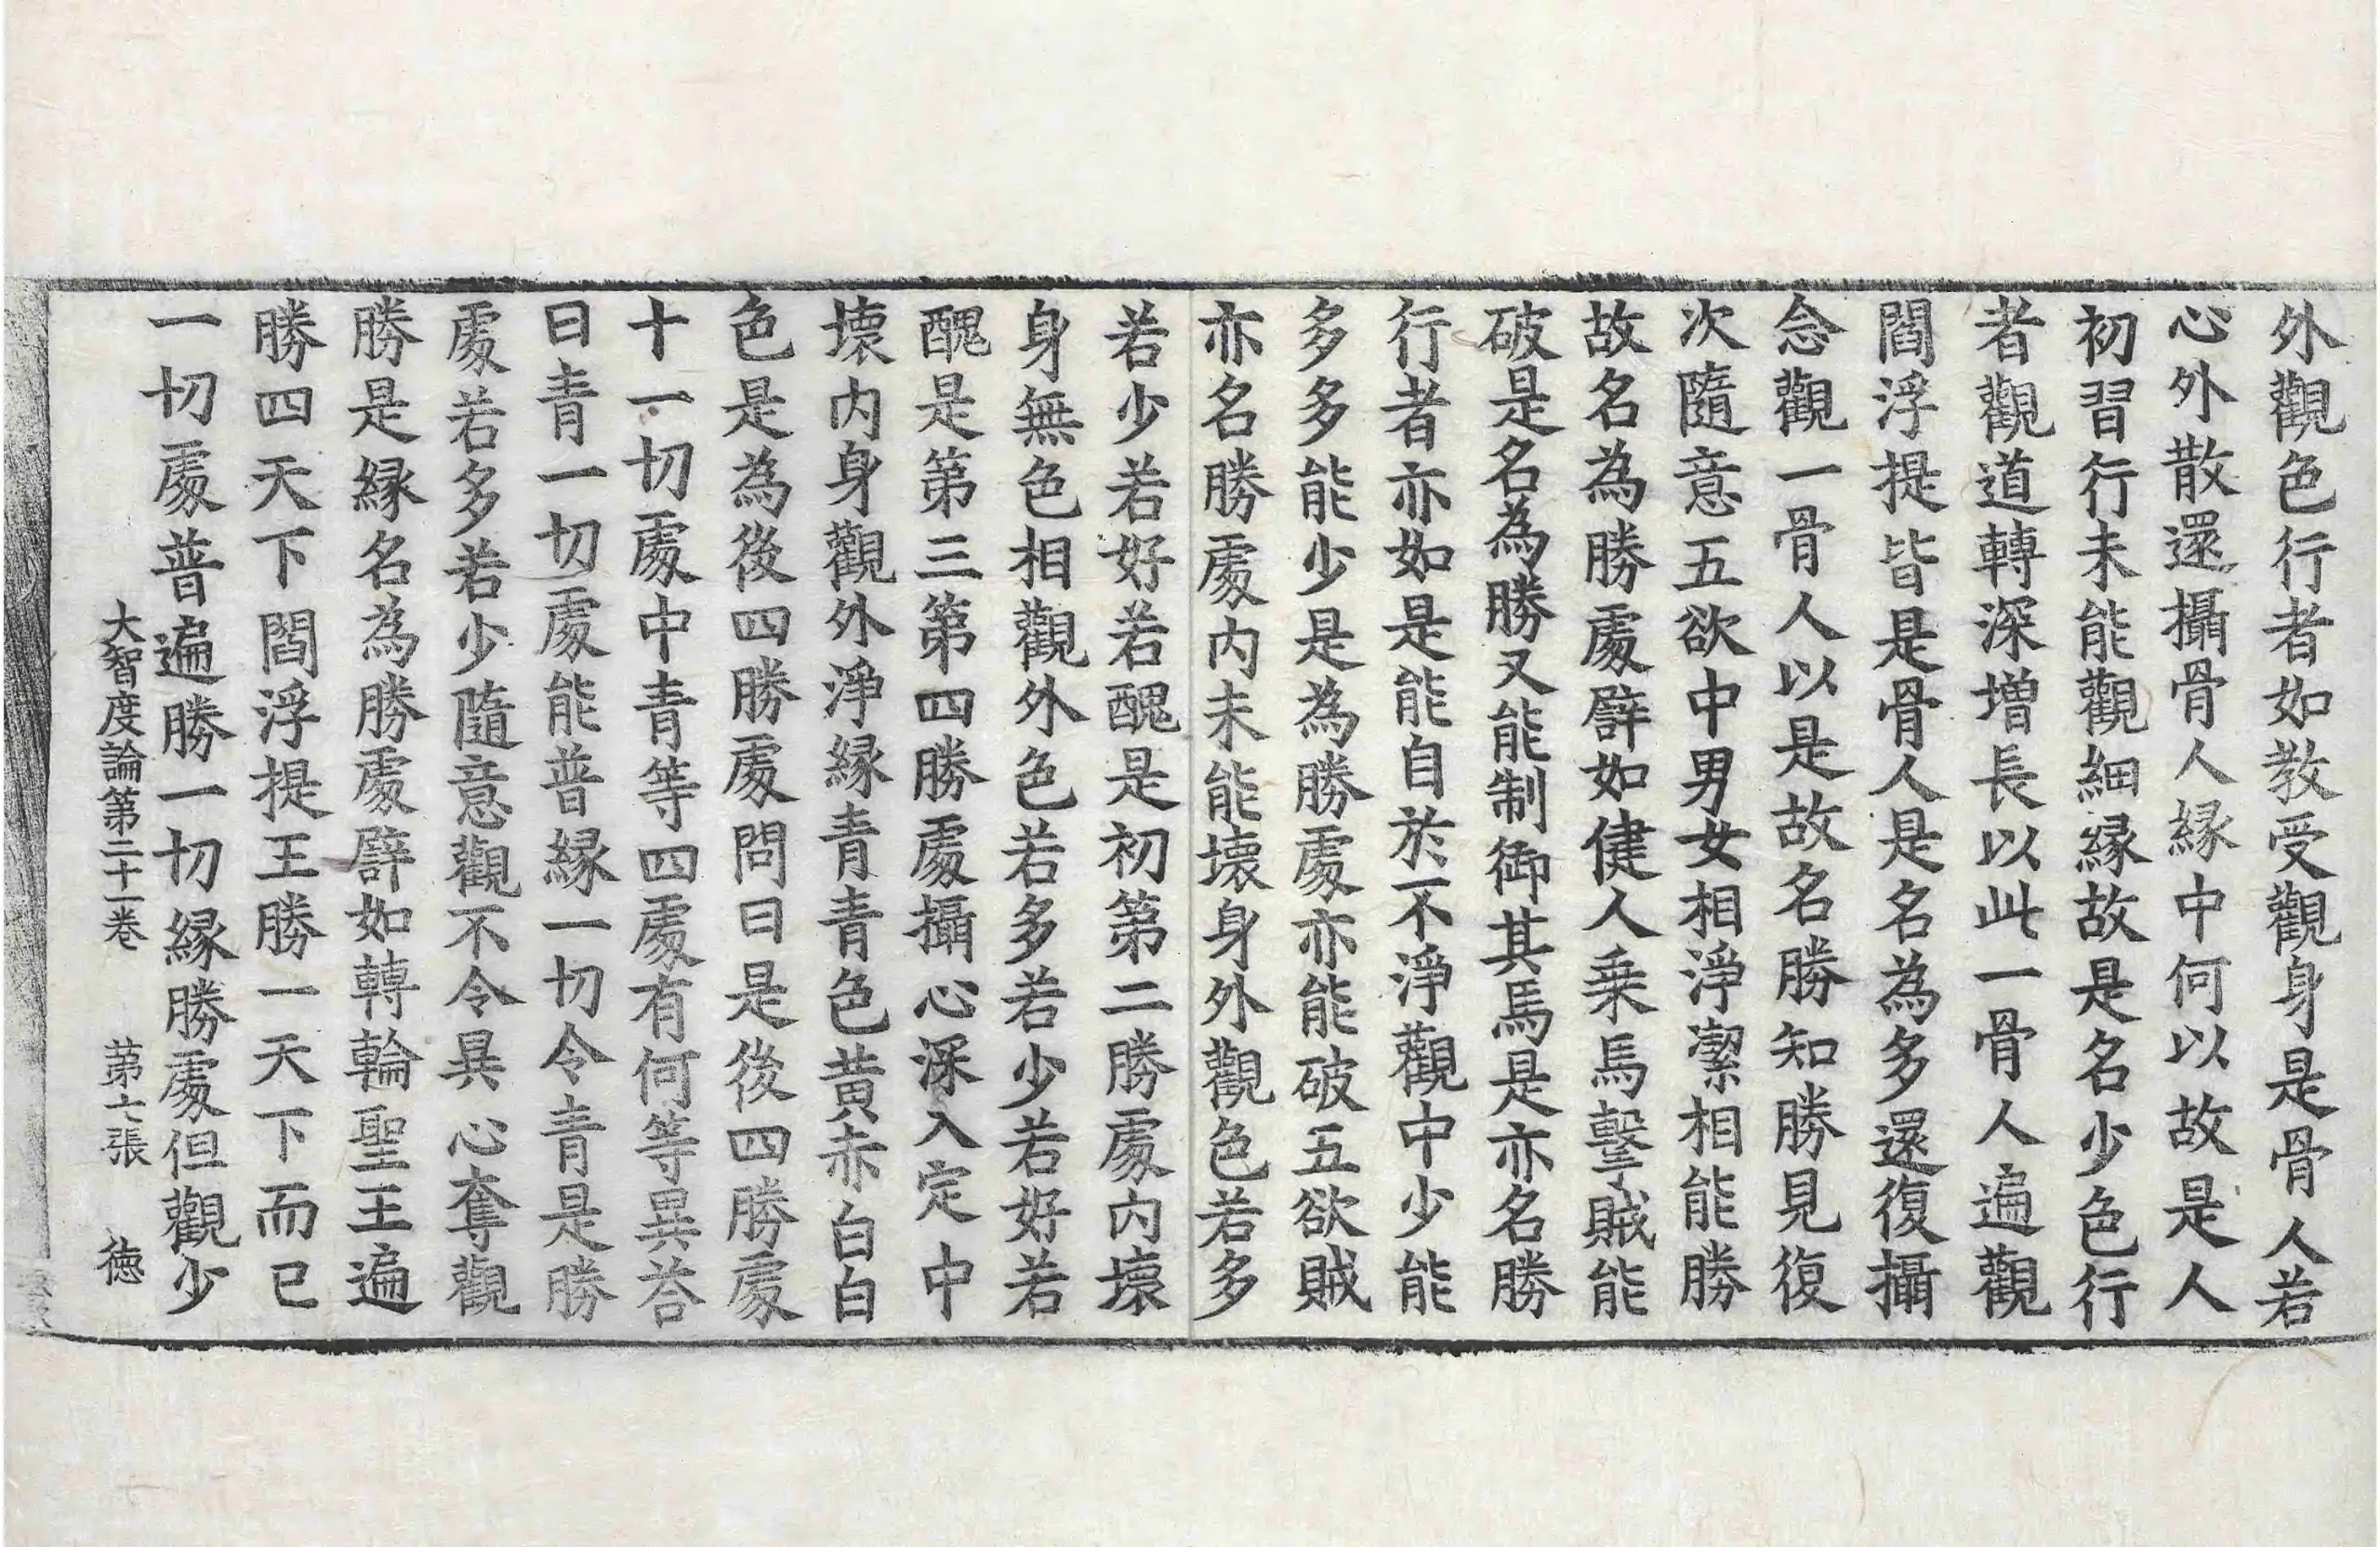 外觀色行者如教受觀身是骨人若
心外散還攝骨人緣中何以故是人
初習行未能觀細緣故是名少色行
者觀道轉深增長以此一骨人遍觀
閻浮提皆是骨人是名為多還復攝
念觀一骨人以是故名勝知勝見復
次隨意五欲中男女相淨潔相能勝
故名為勝處譬如健人乗馬擊賊能
破是名為勝又能制御其馬是亦名勝
行者亦如是能自於不淨觀中少能
多多能少是為勝處亦能破五欲賊
亦名勝處内未能壞身外觀色若多
若少若好若醜是初第二勝處内壞
身無色相觀外色若多若少若好若
醜是第三第四勝處攝心深入定中
壞内身觀外淨緣青青色黄赤白白
色是為後四勝處問曰是後四勝處
十一切處中青等四處有何等異荅
曰青一切處能普緣一切令青是勝
處若多若少隨意觀不令異心奪觀
勝是緣名為勝處譬如轉輪聖王遍
勝四天下閻浮提王勝一天下而已
一切處普遍勝一切緣勝處但觀少
大智度論第二十一卷 第七張 徳